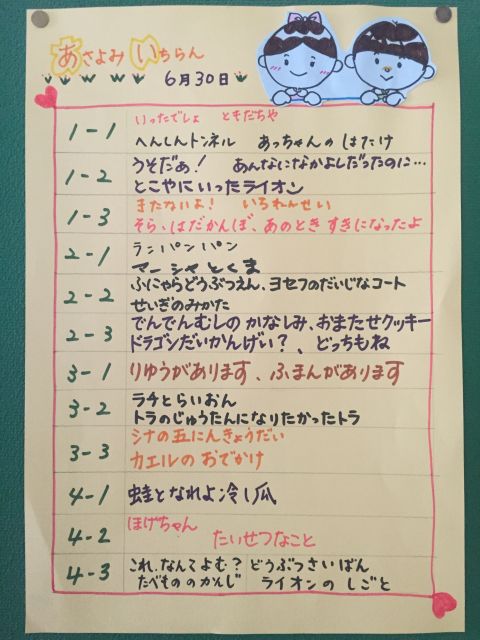 あさよみ いちらん
6月30日
1-1
いったでしょ ともだちや
へんしんトンネル あっちゃんの はたけ
1-2
うそだぁ! あんなになかよしだったのに…
とこやにいったライオン
1-3
またないよ! いちねんせい
そら、はだかんぼ、あのとき すきになったよ
2-1
ランパンパン
マーシャとくま
2-2
ふにゃらどうぶつえん、ヨセフのだいじなコート
せいぎのみかた
2-3
でんでんむしの かなしみ、おまたせクッキー
ドラゴンだいかんげい?、どっちもね
3-1
りゆうがあります、ふまんがあります
3-2
ラチとらいおん
トラのじゅうたんになりたかったトラ
3-3
シナの五にんきょうだい
カエルの おでかけ
4-1
蛙となれよ冷し瓜
4-2
ほげちゃん
たいせつなこと
4-3
これ、なんてよむ? どうぶつさいばん
たべもののかんじ ライオンの しごと